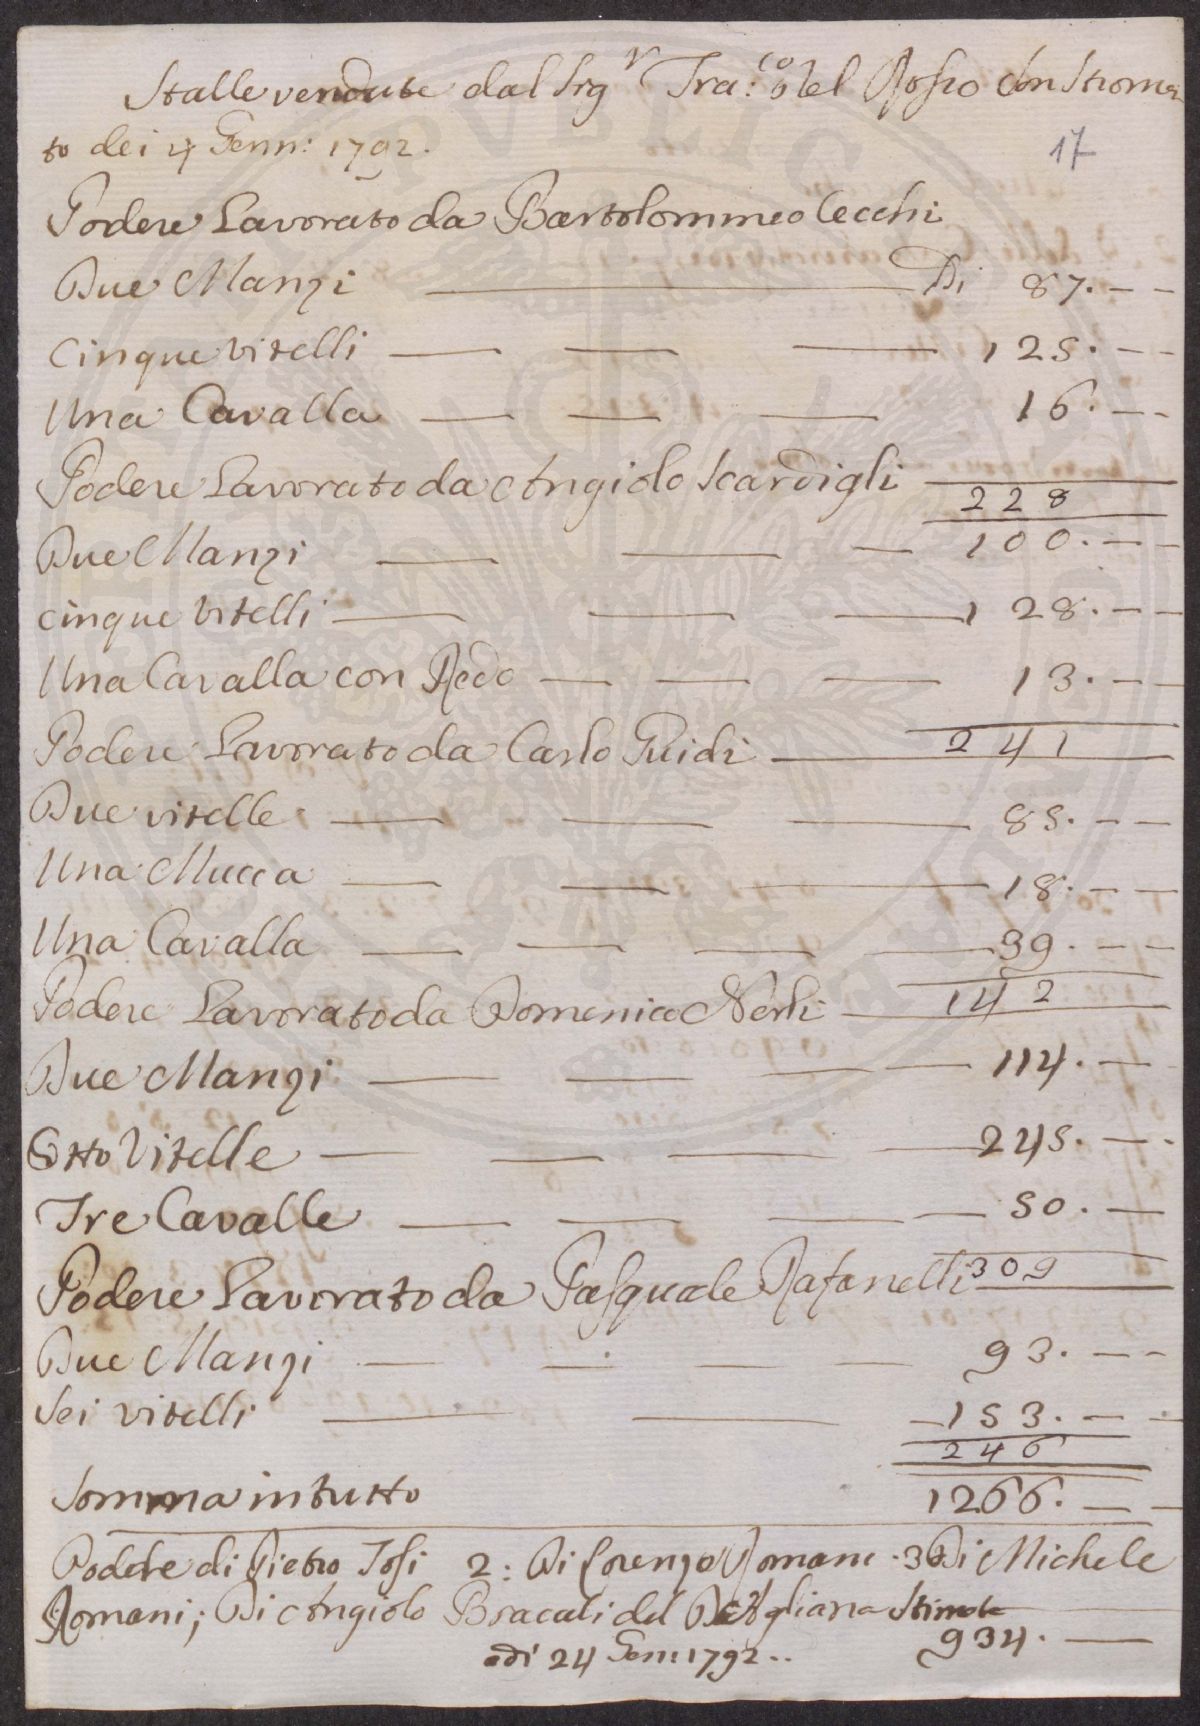 Stalle vendute dal Sigr Fra:co del Rosso Con Stroma
to dei 4 Genn: 1792.
17
Podere Lavorato da Bartolommeo Cecchi
Due Manzi Di 87. — —
Cinque vitelli — — — 125. — —
Una Cavalla — — — 16. — —
Podere Lavorato da Angiolo Scardigli 228
Due Manzi — — — 100. — —
Cinque vitelli — — — 128. — —
Una Cavalla con Redo — — — 13. — —
Podere Lavorato da Carlo Guidi — 241
Due vitelle — — — 85. — —
Una Mucca — — — 18. — —
Una Cavalla — — — — 39. — —
Podere Lavorato da Domenico Nerli — 142
Due Manzi — — — — 114. — —
Otto Vitelle — — — — 245. — —
Tre Cavalle — — — — 50. — —
Podere Lavorato da Pasquale Rafanelli 309
Due Manzi — — — — 93. — —
Sei vitelli — — — 153. — —
246
Somma in tutto 1266. — —
Podere di Pietro Tosi 2: Di Lorenzo Romani . 3 Di Michele
Romani; Di Angiolo Bracali del Stimate
934. —
adi 24 Gen: 1792..